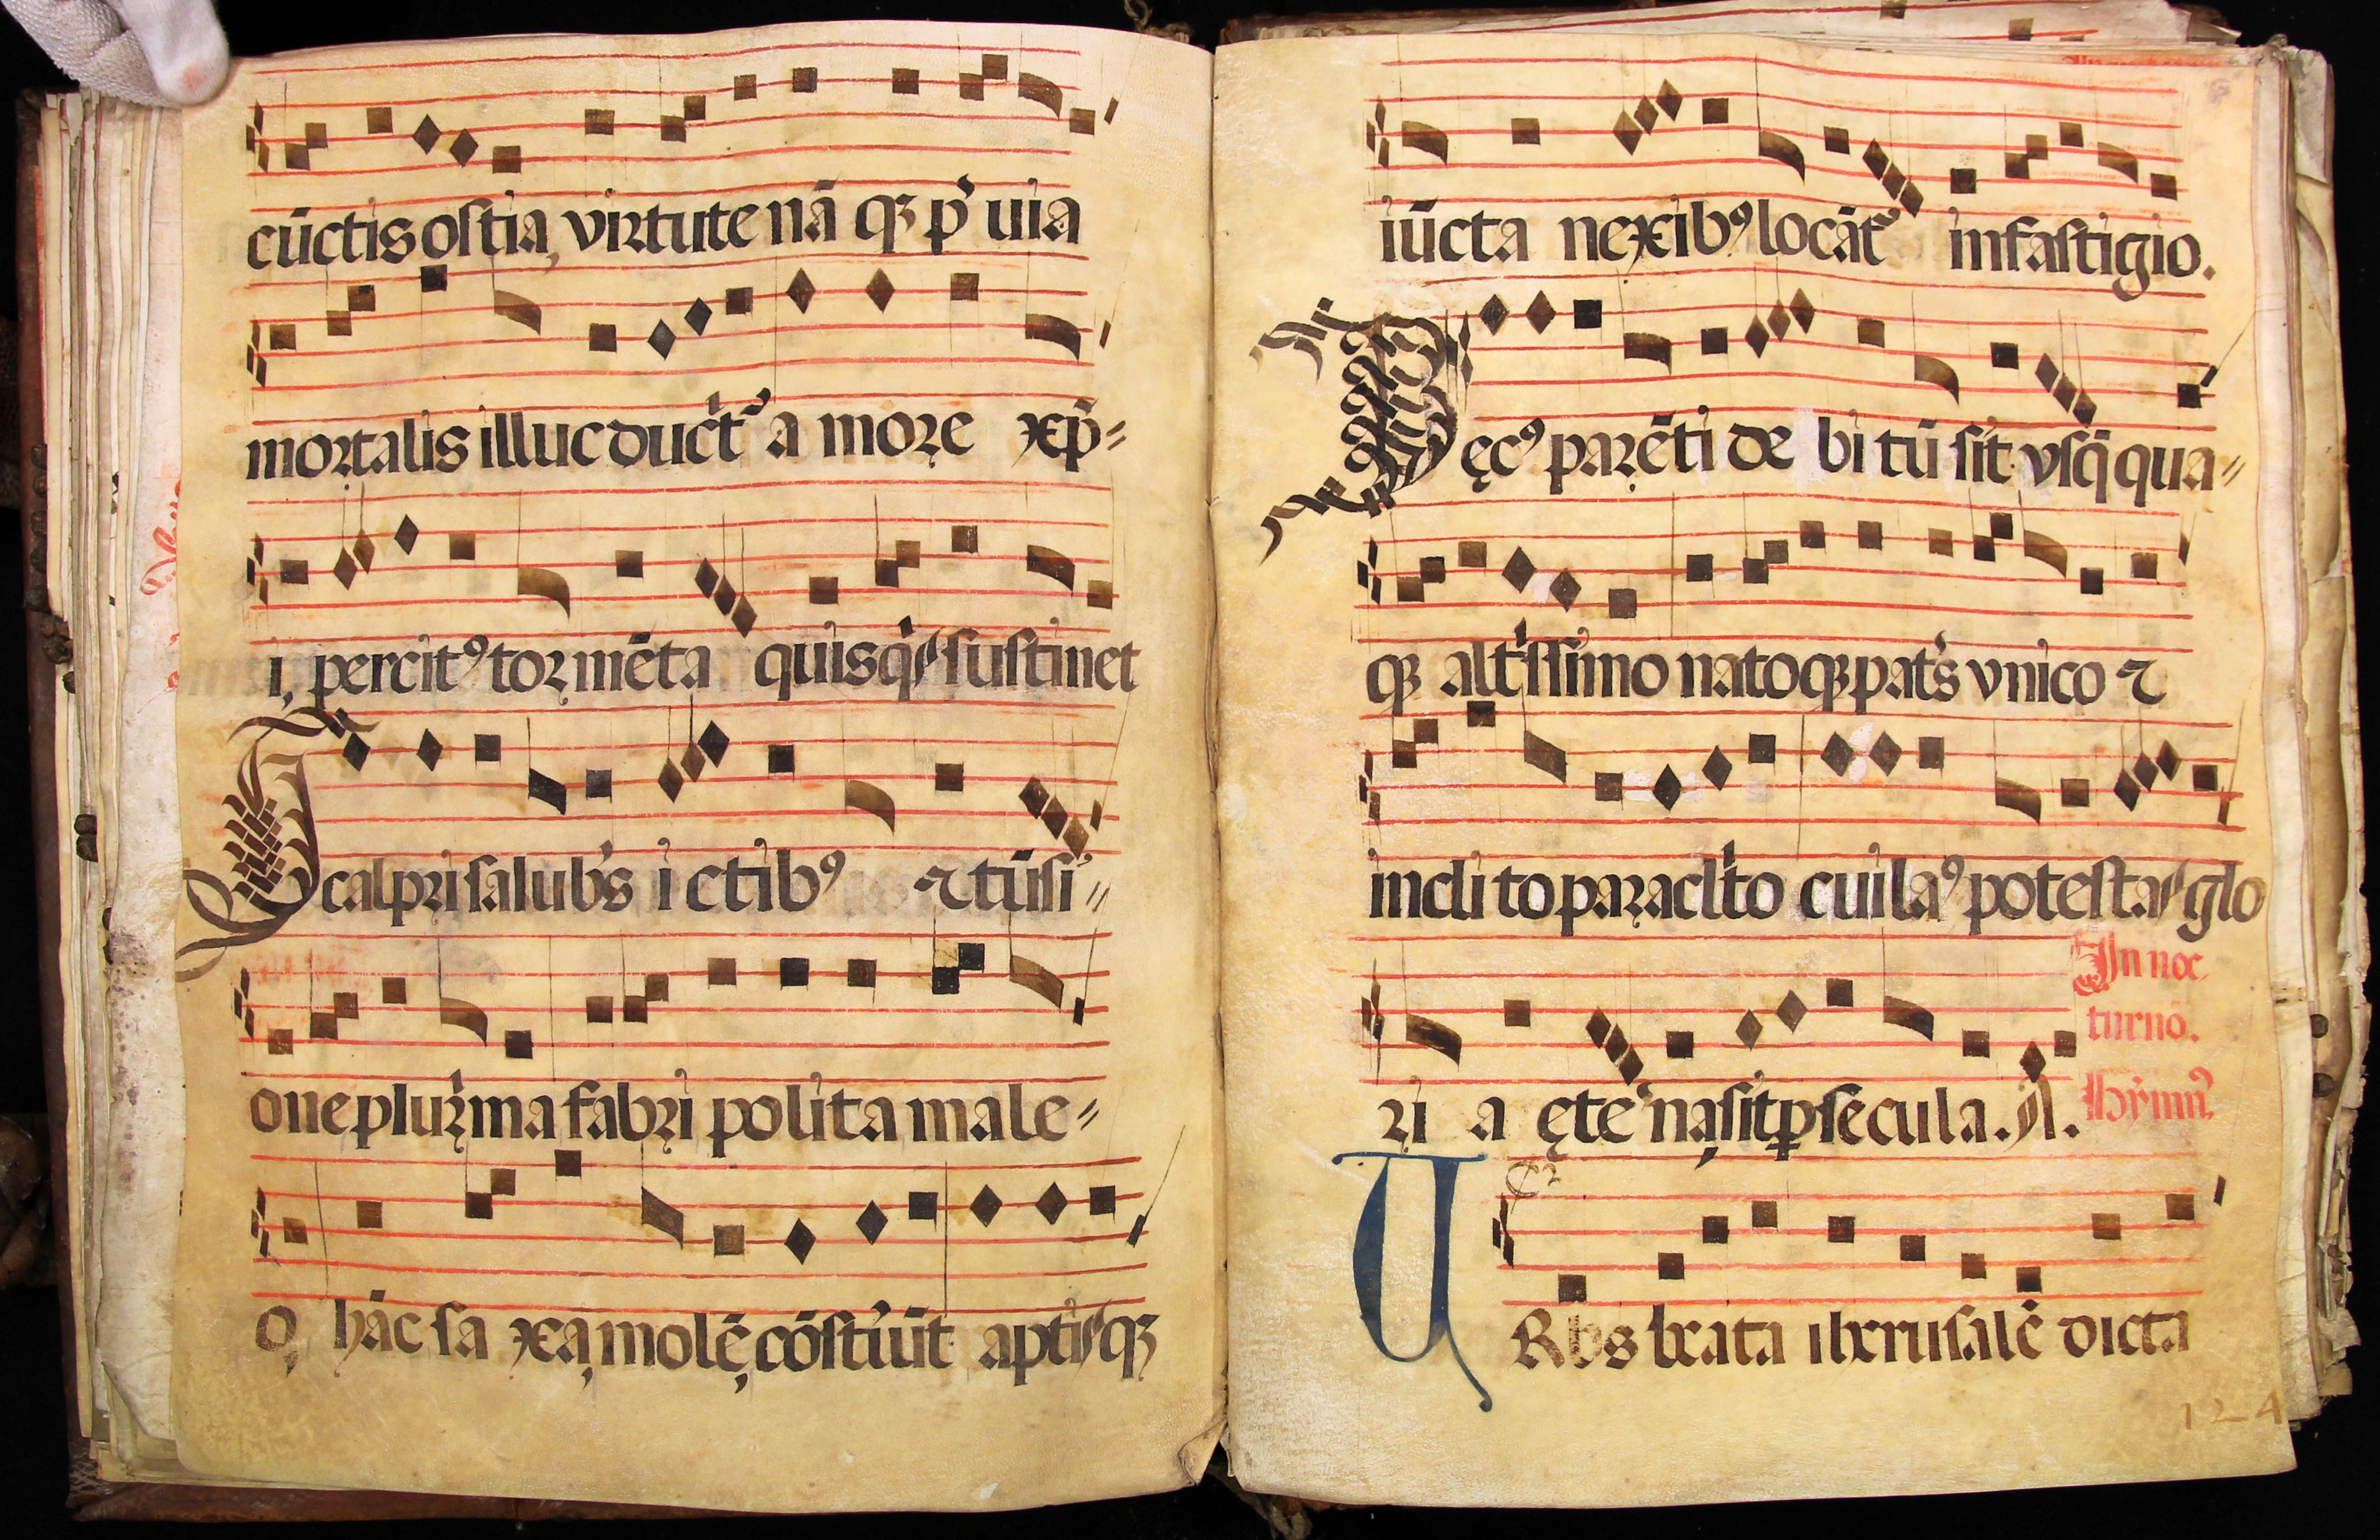 cūctis ostia, virtute nā qʒ p̄uia
mortalis illuc duct᷑ amore xp̄=
i, percitꝰ tormēta quisq̇s sustinet
Scalpri salubr̍s ictibꝰ ⁊ tūsi=
one plur̍ma fabri polita male=
o, hāc saxa, molē, cōstr̍ūt aptisqʒ
iūcta nexibꝰ locāt᷑ in fastigio.
Decꝰ parēti debitū sit vsq̄qua=
qʒ alt̍ssimo natoqʒ patr̍s vnico ⁊
inclito paraclito cui laꝰ potestas glo
ria ęte͛na, sit ꝑ secula. A.
In noc
turnō.
hẏmnꝰ
URbs beata iherusalē dicta
124